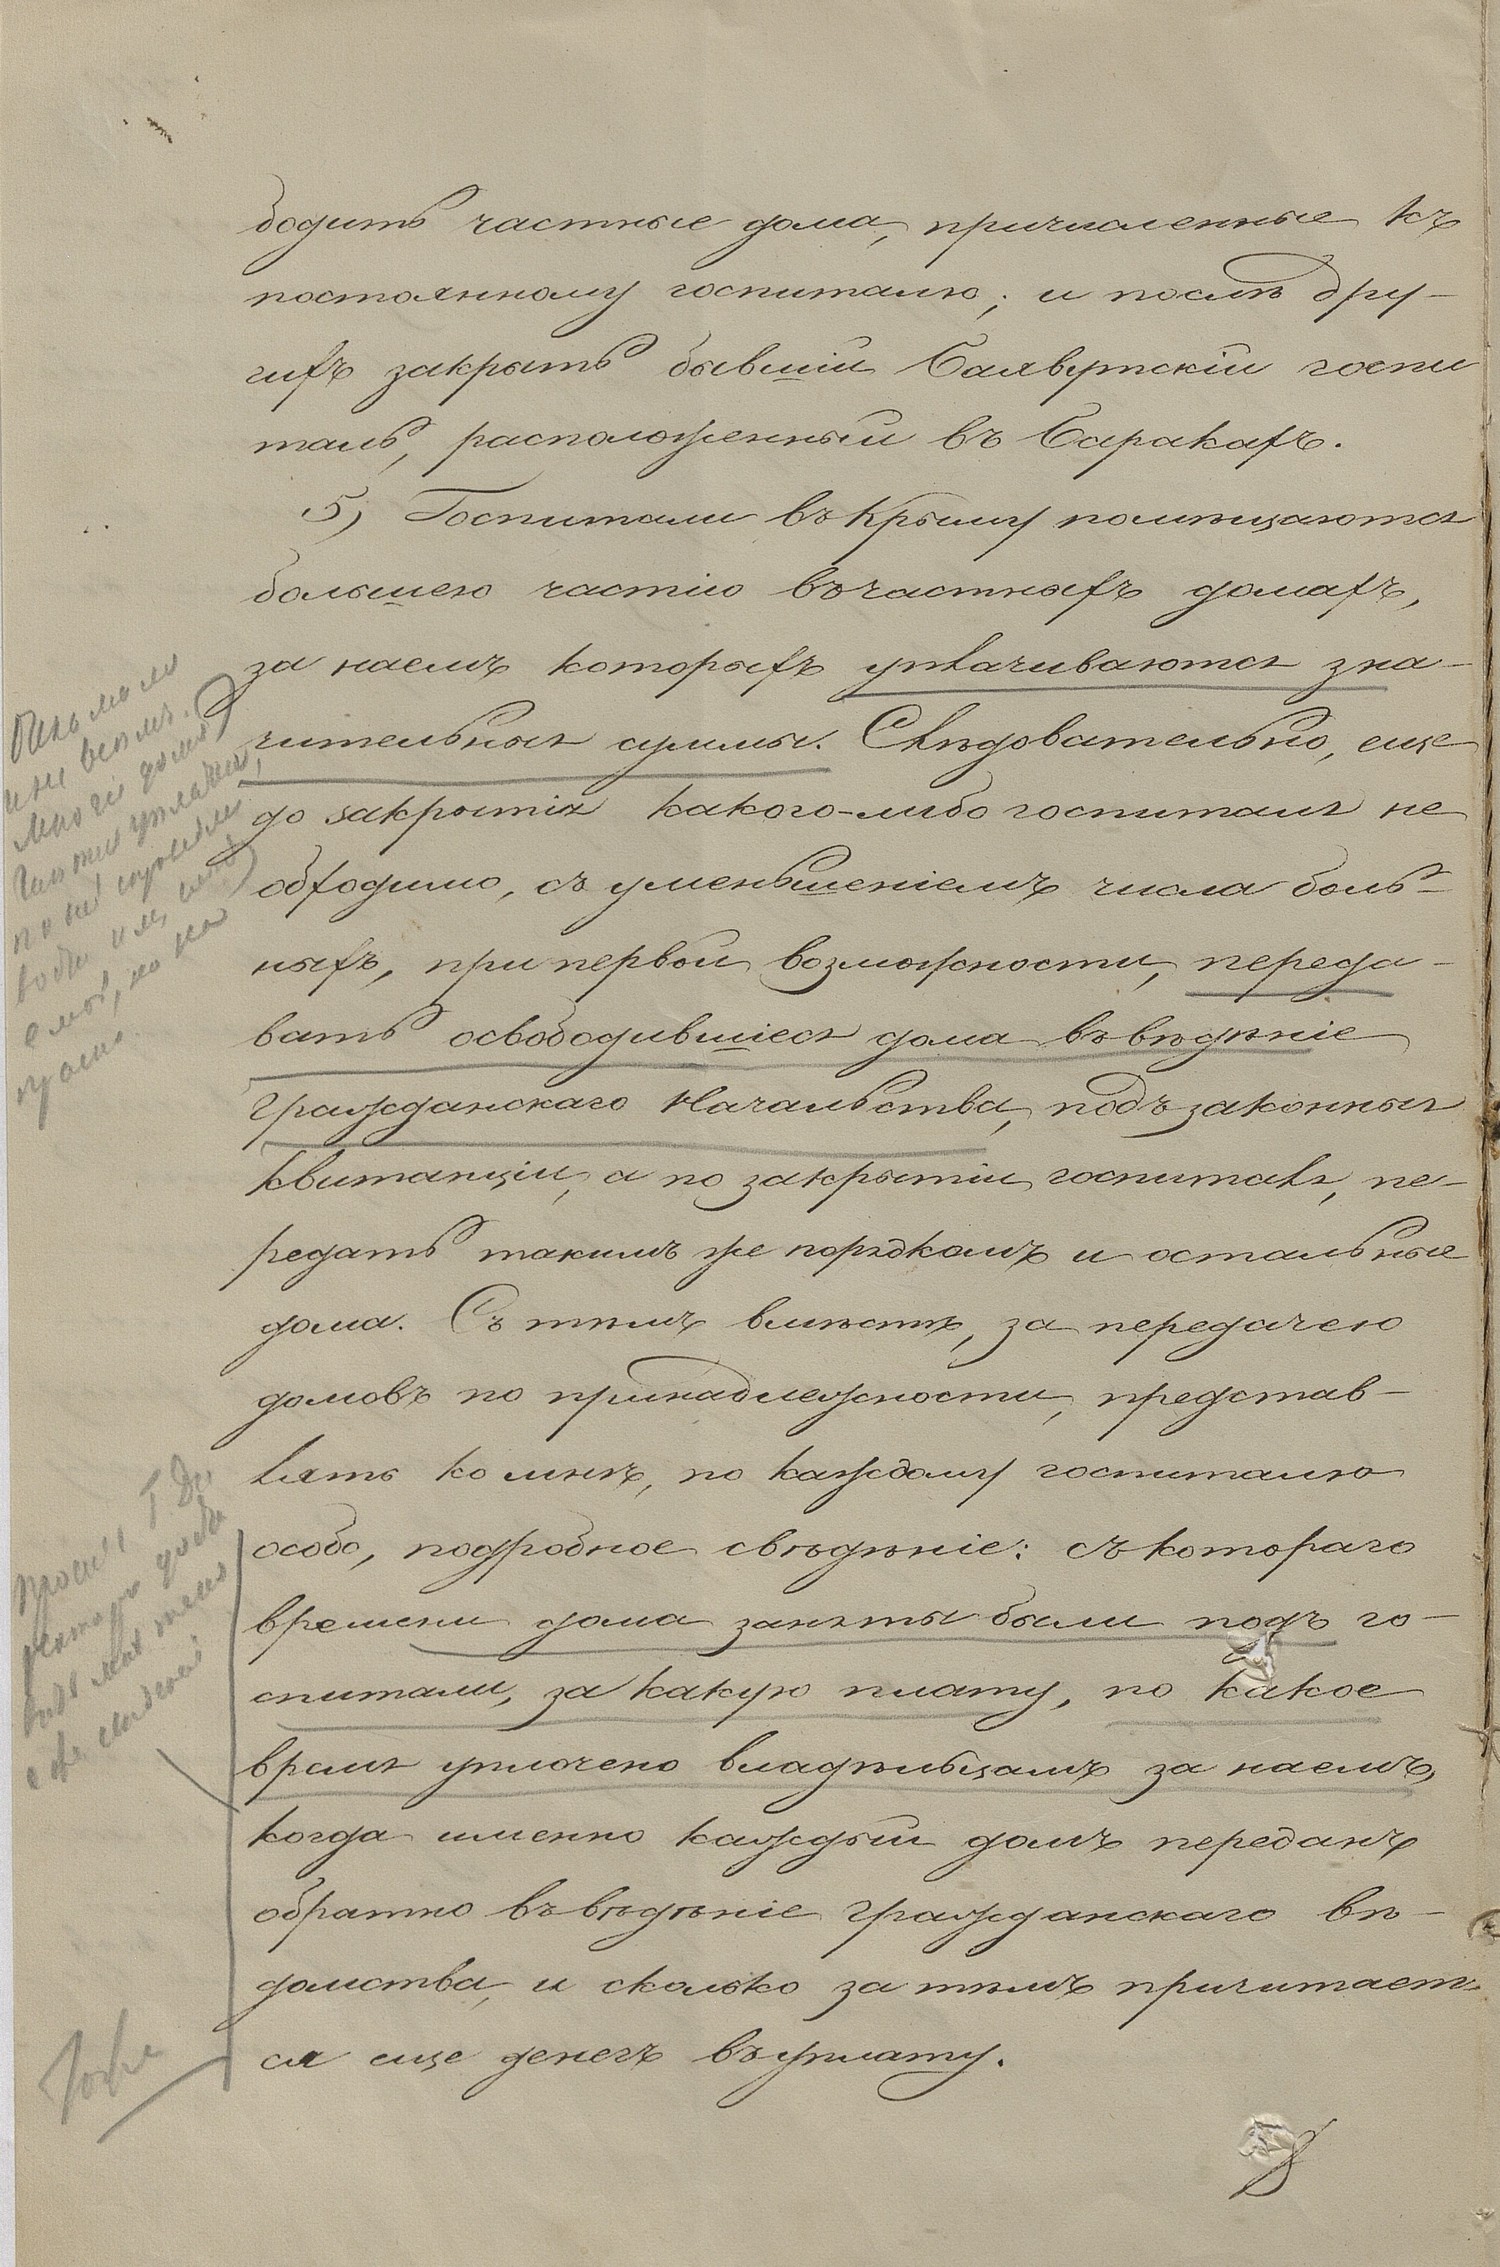 бодить частные дома, причисленные къ
постоянному госпиталю; и послѣ дру-
гихъ закрыть бывшій Баявутскій госпи
таль, расположенный въ баракахъ.
5) Госпитали въ Крыму помѣщаются
большею частію въ частныхъ домахъ,
за наемъ которыхъ уплачиваются зна-
чительныя суммы. Слѣдовательно, еще
до закрытія какого-либо госпиталя не
обходимо, съ уменьшеніемъ числа боль-
ныхъ, при первой возможности, переда-
вать освободившіеся дома въ вѣдѣніе
Гражданскаго Начальства, подъ законныя
квитанціи, а по закрытіи госпиталя, пе-
редать такимъ же порядкомъ и остальные
дома. Съ тѣмъ вмѣстѣ, за передачею
домовъ по принадлежности, представ-
лять ко мнѣ, по каждому госпиталю
особо, подробное свѣдѣніе: съ котораго
времени дома заняты были подъ го-
спитали, за какую плату, по какое
время уплочено владѣльцамъ за наемъ,
когда именно каждый домъ переданъ
обратно въ вѣдѣніе гражданскаго вѣ-
домства, и сколько за тѣмъ причитает-
ся еще денегъ въ уплату.